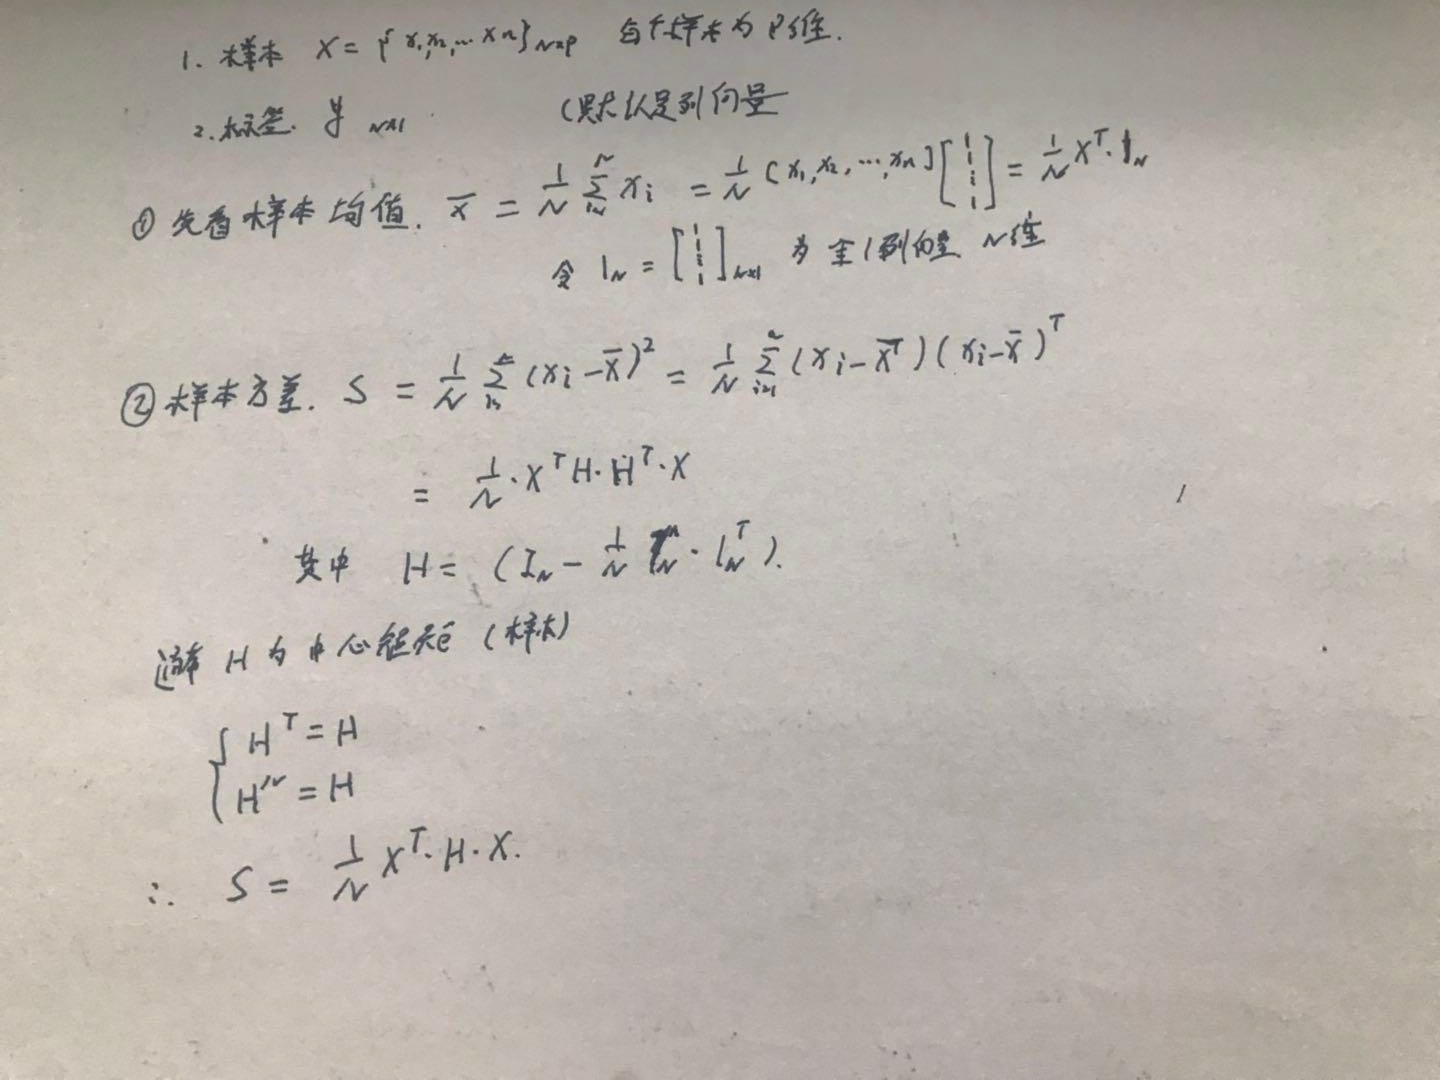 1. 样本 X = { x₁,x₂,... xₙ}_{N×P} 每个样本为 P维.
2.标签. y_{N×1} (默认是列向量
① 先看样本均值. x̄ = 1/N Σ_{i=1}^{N} xᵢ = 1/N [x₁,x₂, ..., xₙ] [1 1 1 1] = 1/N X^T · 1_N
令 1_N = [1 1 1 1]_{N×1} 为 全1列向量 N维
② 样本方差. S = 1/N Σ_{i=1}^{N} (xᵢ - x̄)² = 1/N Σ_{i=1}^{N} (xᵢ - x̄^T) (xᵢ - x̄)^T
= 1/N · X^T H · H^T · X
其中 H = (I_N - 1/N 1_N · 1_N^T).
H 为 中心矩阵 (样本)
{ H^T = H
H^n = H
∴ S = 1/N X^T · H · X.